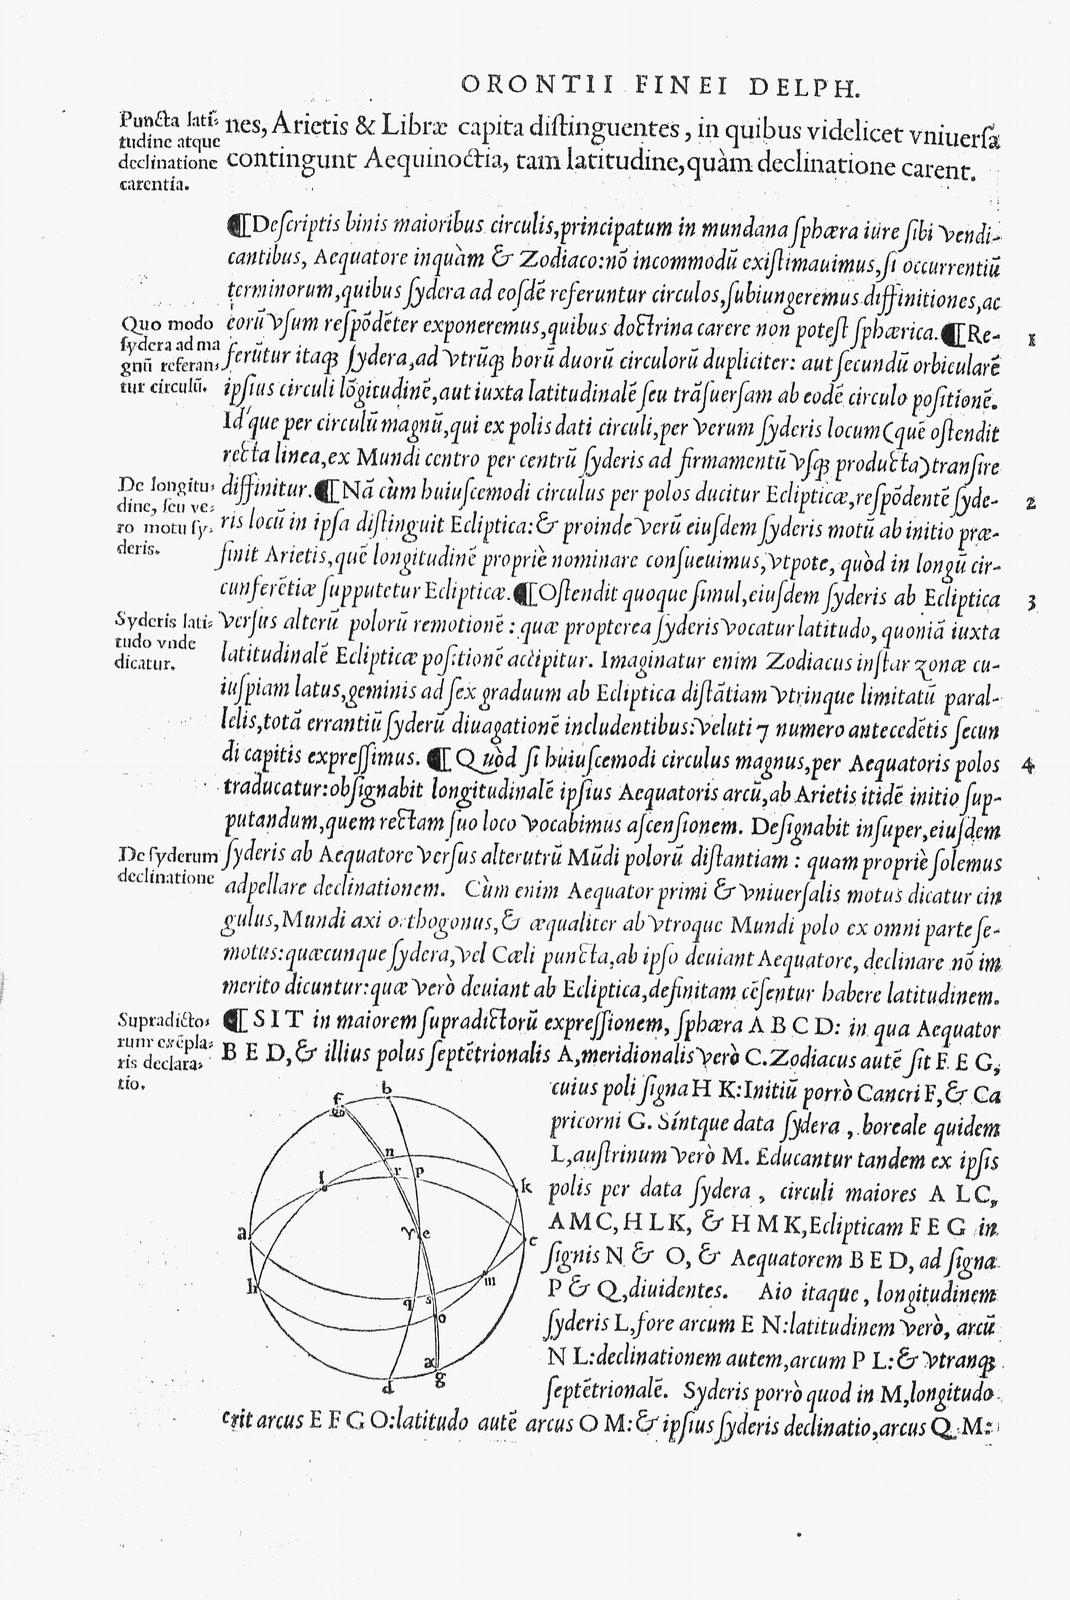 ORONTII FINEI DELPH.
Puncta lati-
tudine atque
declinatione
carentia.
nes, Arietis & Libræ capita distinguentes, in quibus videlicet vniuersa
contingunt Aequinoctia, tam latitudine, quàm declinatione carent.
¶Descriptis binis maioribus circulis, principatum in mundana sphæra iure sibi vendi-
cantibus, Aequatore inquàm & Zodiaco: nō incommodū existimauimus, si occurrentiū
terminorum, quibus sydera ad eosdē referuntur circulos, subiungeremus diffinitiones, ac
eorū vsum respōdēter exponeremus, quibus doctrina carere non potest sphærica. ¶Re- 1
Quo modo
sydera ad ma
gnū referan-
tur circulū.
ferūtur itaqꝫ sydera, ad vtrūqꝫ horū duorū circulorū dupliciter: aut secundū orbicularē
ipsius circuli lōgitudinē, aut iuxta latitudinalē seu trāsuersam ab eodē circulo positionē.
Id'que per circulū magnū, qui ex polis dati circuli, per verum syderis locum (quē ostendit
recta linea, ex Mundi centro per centrū syderis ad firmamentū vsqꝫ producta) transire
diffinitur. ¶Nā cùm huiuscemodi circulus per polos ducitur Eclipticæ, respōdentē syde- 2
De longitu-
dine, seu ve-
ro motu sy-
deris.
ris locū in ipsa distinguit Ecliptica: & proinde verū eiusdem syderis motū ab initio præ-
finit Arietis, quē longitudinē propriè nominare consueuimus, vtpote, quòd in longū cir-
cunferētiæ supputetur Eclipticæ. ¶Ostendit quoque simul, eiusdem syderis ab Ecliptica 3
Syderis lati-
tudo vnde
dicatur.
versus alterū polorū remotionē: quæ propterea syderis vocatur latitudo, quoniā iuxta
latitudinalē Eclipticæ positionē accipitur. Imaginatur enim Zodiacus instar zonæ cu-
iuspiam latus, geminis ad sex graduum ab Ecliptica distātiam vtrinque limitatū paral-
lelis, totā errantiū syderū diuagationē includentibus: veluti 7 numero antecedētis secun
di capitis expressimus. ¶Quòd si huiuscemodi circulus magnus, per Aequatoris polos 4
traducatur: obsignabit longitudinalē ipsius Aequatoris arcū, ab Arietis itidē initio sup-
putandum, quem rectam suo loco vocabimus ascensionem. Designabit insuper, eiusdem
De syderum
declinatione
syderis ab Aequatore versus alterutrū Mūdi polorū distantiam: quam propriè solemus
adpellare declinationem. Cùm enim Aequator primi & vniuersalis motus dicatur cin
gulus, Mundi axi orthogonus, & æqualiter ab vtroque Mundi polo ex omni parte se-
motus: quæcunque sydera, vel Cæli puncta, ab ipso deuiant Aequatore, declinare nō im
merito dicuntur: quæ verò deuiant ab Ecliptica, definitam cēsentur habere latitudinem.
Supradicto-
rum exēpla-
ris declara-
tio.
¶SIT in maiorem supradictorū expressionem, sphæra A B C D: in qua Aequator
B E D, & illius polus septētrionalis A, meridionalis verò C. Zodiacus autē sit F E G,
cuius poli signa H K: Initiū porrò Cancri F, & Ca
pricorni G. Síntque data sydera, boreale quidem
L, austrinum verò M. Educantur tandem ex ipsis
polis per data sydera, circuli maiores A L C,
A M C, H L K, & H M K, Eclipticam F E G in
signis N & O, & Aequatorem B E D, ad signa
P & Q, diuidentes. Aio itaque, longitudinem
syderis L, fore arcum E N: latitudinem verò, arcū
N L: declinationem autem, arcum P L: & vtranqꝫ
septētrionalē. Syderis porrò quod in M, longitudo
erit arcus E F G O: latitudo autē arcus O M: & ipsius syderis declinatio, arcus Q M:
b
f
♋
n
l
r p
k
a
♈ e
c
h
m
q s
o
d
g